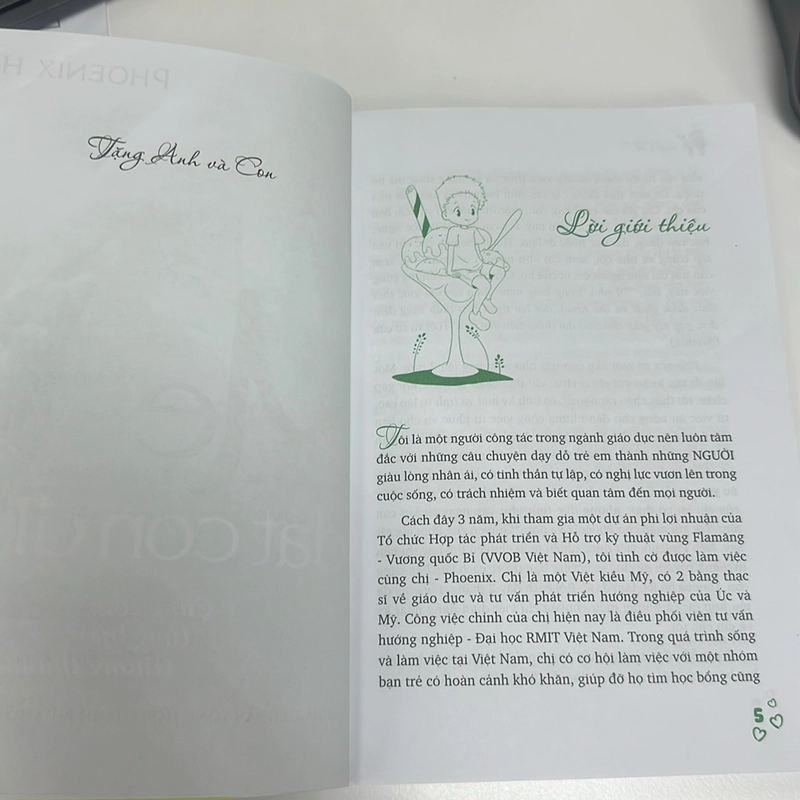 PHOENIX H
Tặng Anh và Con
Mẹ
dắt con đi
Lời giới thiệu
Tôi là một người công tác trong ngành giáo dục nên luôn tâm
đắc với những câu chuyện dạy dỗ trẻ em thành những NGƯỜI
giàu lòng nhân ái, có tinh thần tự lập, có nghị lực vươn lên trong
cuộc sống, có trách nhiệm và biết quan tâm đến mọi người.
Cách đây 3 năm, khi tham gia một dự án phi lợi nhuận của
Tổ chức Hợp tác phát triển và Hỗ trợ kỹ thuật vùng Flamăng
- Vương quốc Bỉ (VVOB Việt Nam), tôi tình cờ được làm việc
cùng chị - Phoenix. Chị là một Việt kiều Mỹ, có 2 bằng thạc
sĩ về giáo dục và tư vấn phát triển hướng nghiệp của Úc và
Mỹ. Công việc chính của chị hiện nay là điều phối viên tư vấn
hướng nghiệp - Đại học RMIT Việt Nam. Trong quá trình sống
và làm việc tại Việt Nam, chị có cơ hội làm việc với một nhóm
bạn trẻ có hoàn cảnh khó khăn, giúp đỡ họ tìm học bổng cũng
5